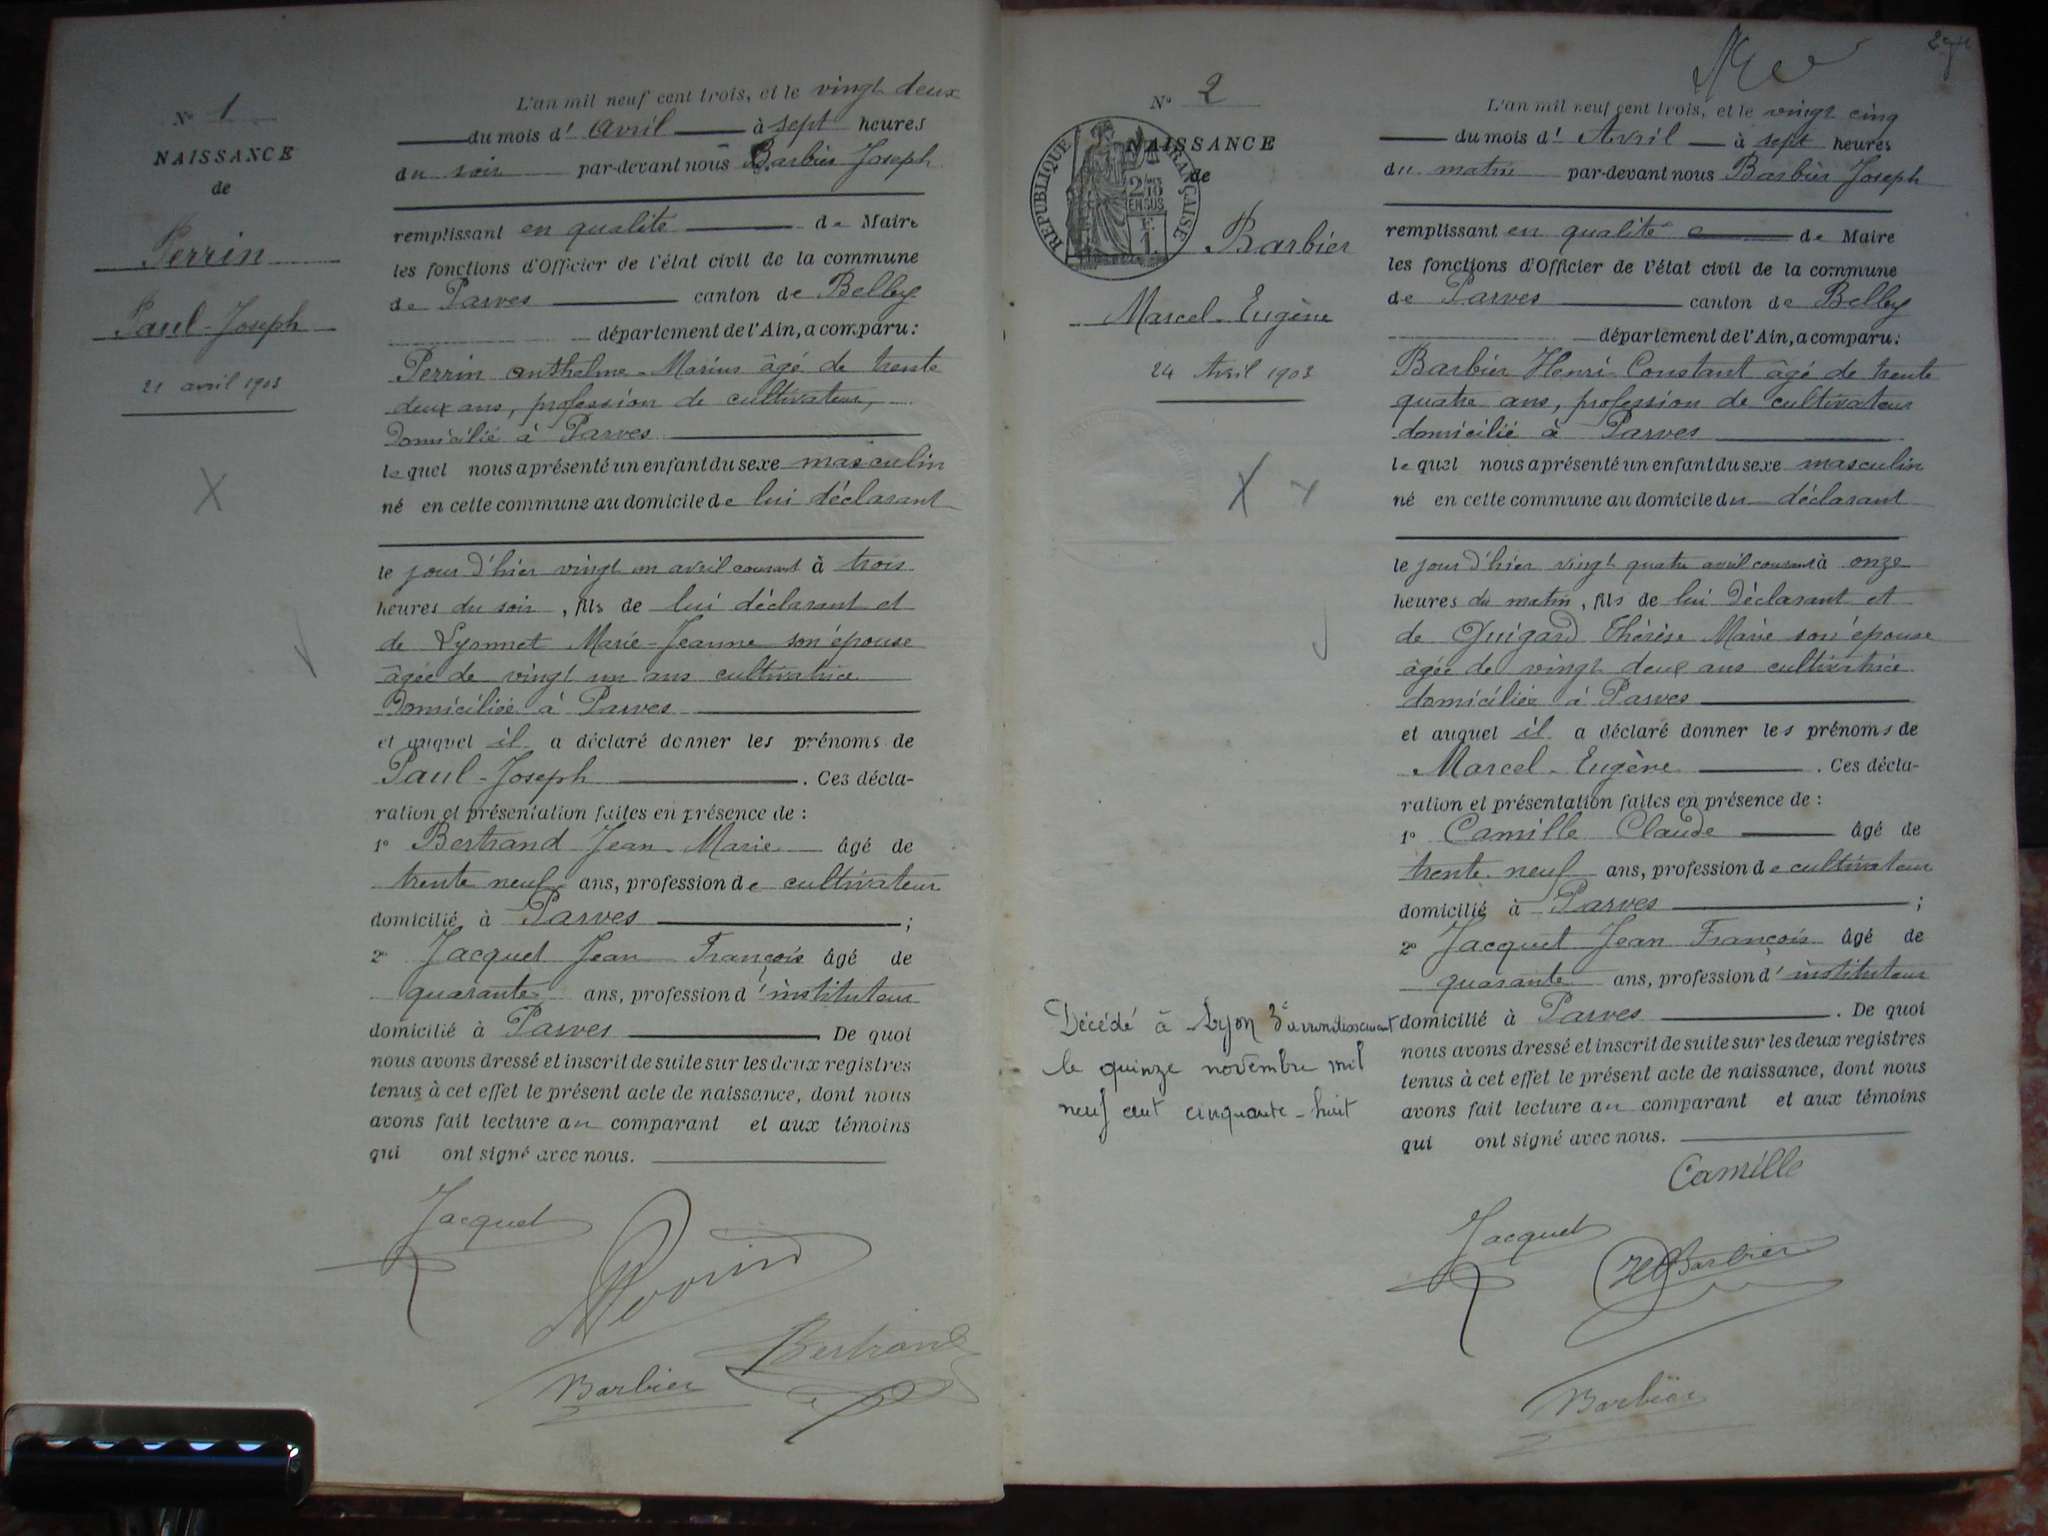 N° 1
NAISSANCE
de
Perrin
Paul-Joseph
21 avril 1903
L'an mil neuf cent trois, et le vingt deux
du mois d' Avril à sept heures
du soir par-devant nous Barbier Joseph
remplissant en qualité de Maire
les fonctions d'Officier de l'état civil de la commune
de Parves canton de Belley
département de l'Ain, a comparu:
Perrin Anthelme-Marius âgé de trente
deux ans, profession de cultivateur,
domicilié à Parves
lequel nous a présenté un enfant du sexe masculin
né en cette commune au domicile de lui déclarant
le jour d'hier vingt un avril courant à trois
heures du soir, fils de lui déclarant et
de Lyonnet Marie-Jeanne son épouse
âgée de vingt un ans cultivatrice
domiciliée à Parves
et auquel il a déclaré donner les prénoms de
Paul-Joseph. Ces décla-
ration et présentation faites en présence de :
1° Bertrand Jean-Marie âgé de
trente neuf ans, profession de cultivateur
domicilié à Parves ;
2° Jacquet Jean François âgé de
quarante ans, profession d'instituteur
domicilié à Parves. De quoi
nous avons dressé et inscrit de suite sur les deux registres
tenus à cet effet le présent acte de naissance, dont nous
avons fait lecture au comparant et aux témoins
qui ont signé avec nous.
Jacquet
Perrin
Bertrand
Barbier
N° 2
NAISSANCE
de
RÉPUBLIQUE FRANÇAISE
Barbier
Marcel-Eugène
24 Avril 1903
Décédé à Lyon 3e arrondissement
le quinze novembre mil
neuf cent cinquante-huit
L'an mil neuf cent trois, et le vingt cinq
du mois d' Avril à sept heures
du matin par-devant nous Barbier Joseph
remplissant en qualité de Maire
les fonctions d'Officier de l'état civil de la commune
de Parves canton de Belley
département de l'Ain, a comparu:
Barbier Henri-Constant âgé de trente
quatre ans, profession de cultivateur
domicilié à Parves
lequel nous a présenté un enfant du sexe masculin
né en cette commune au domicile du déclarant
le jour d'hier vingt quatre avril courant à onze
heures du matin, fils de lui déclarant et
de Guigard Thérèse Marie son épouse
âgée de vingt deux ans cultivatrice
domiciliée à Parves
et auquel il a déclaré donner les prénoms de
Marcel-Eugène. Ces décla-
ration et présentation faites en présence de :
1° Camille Claude âgé de
trente neuf ans, profession de cultivateur
domicilié à Parves ;
2° Jacquet Jean François âgé de
quarante ans, profession d'instituteur
domicilié à Parves. De quoi
nous avons dressé et inscrit de suite sur les deux registres
tenus à cet effet le présent acte de naissance, dont nous
avons fait lecture au comparant et aux témoins
qui ont signé avec nous.
Camille
Jacquet
H Barbier
Barbier